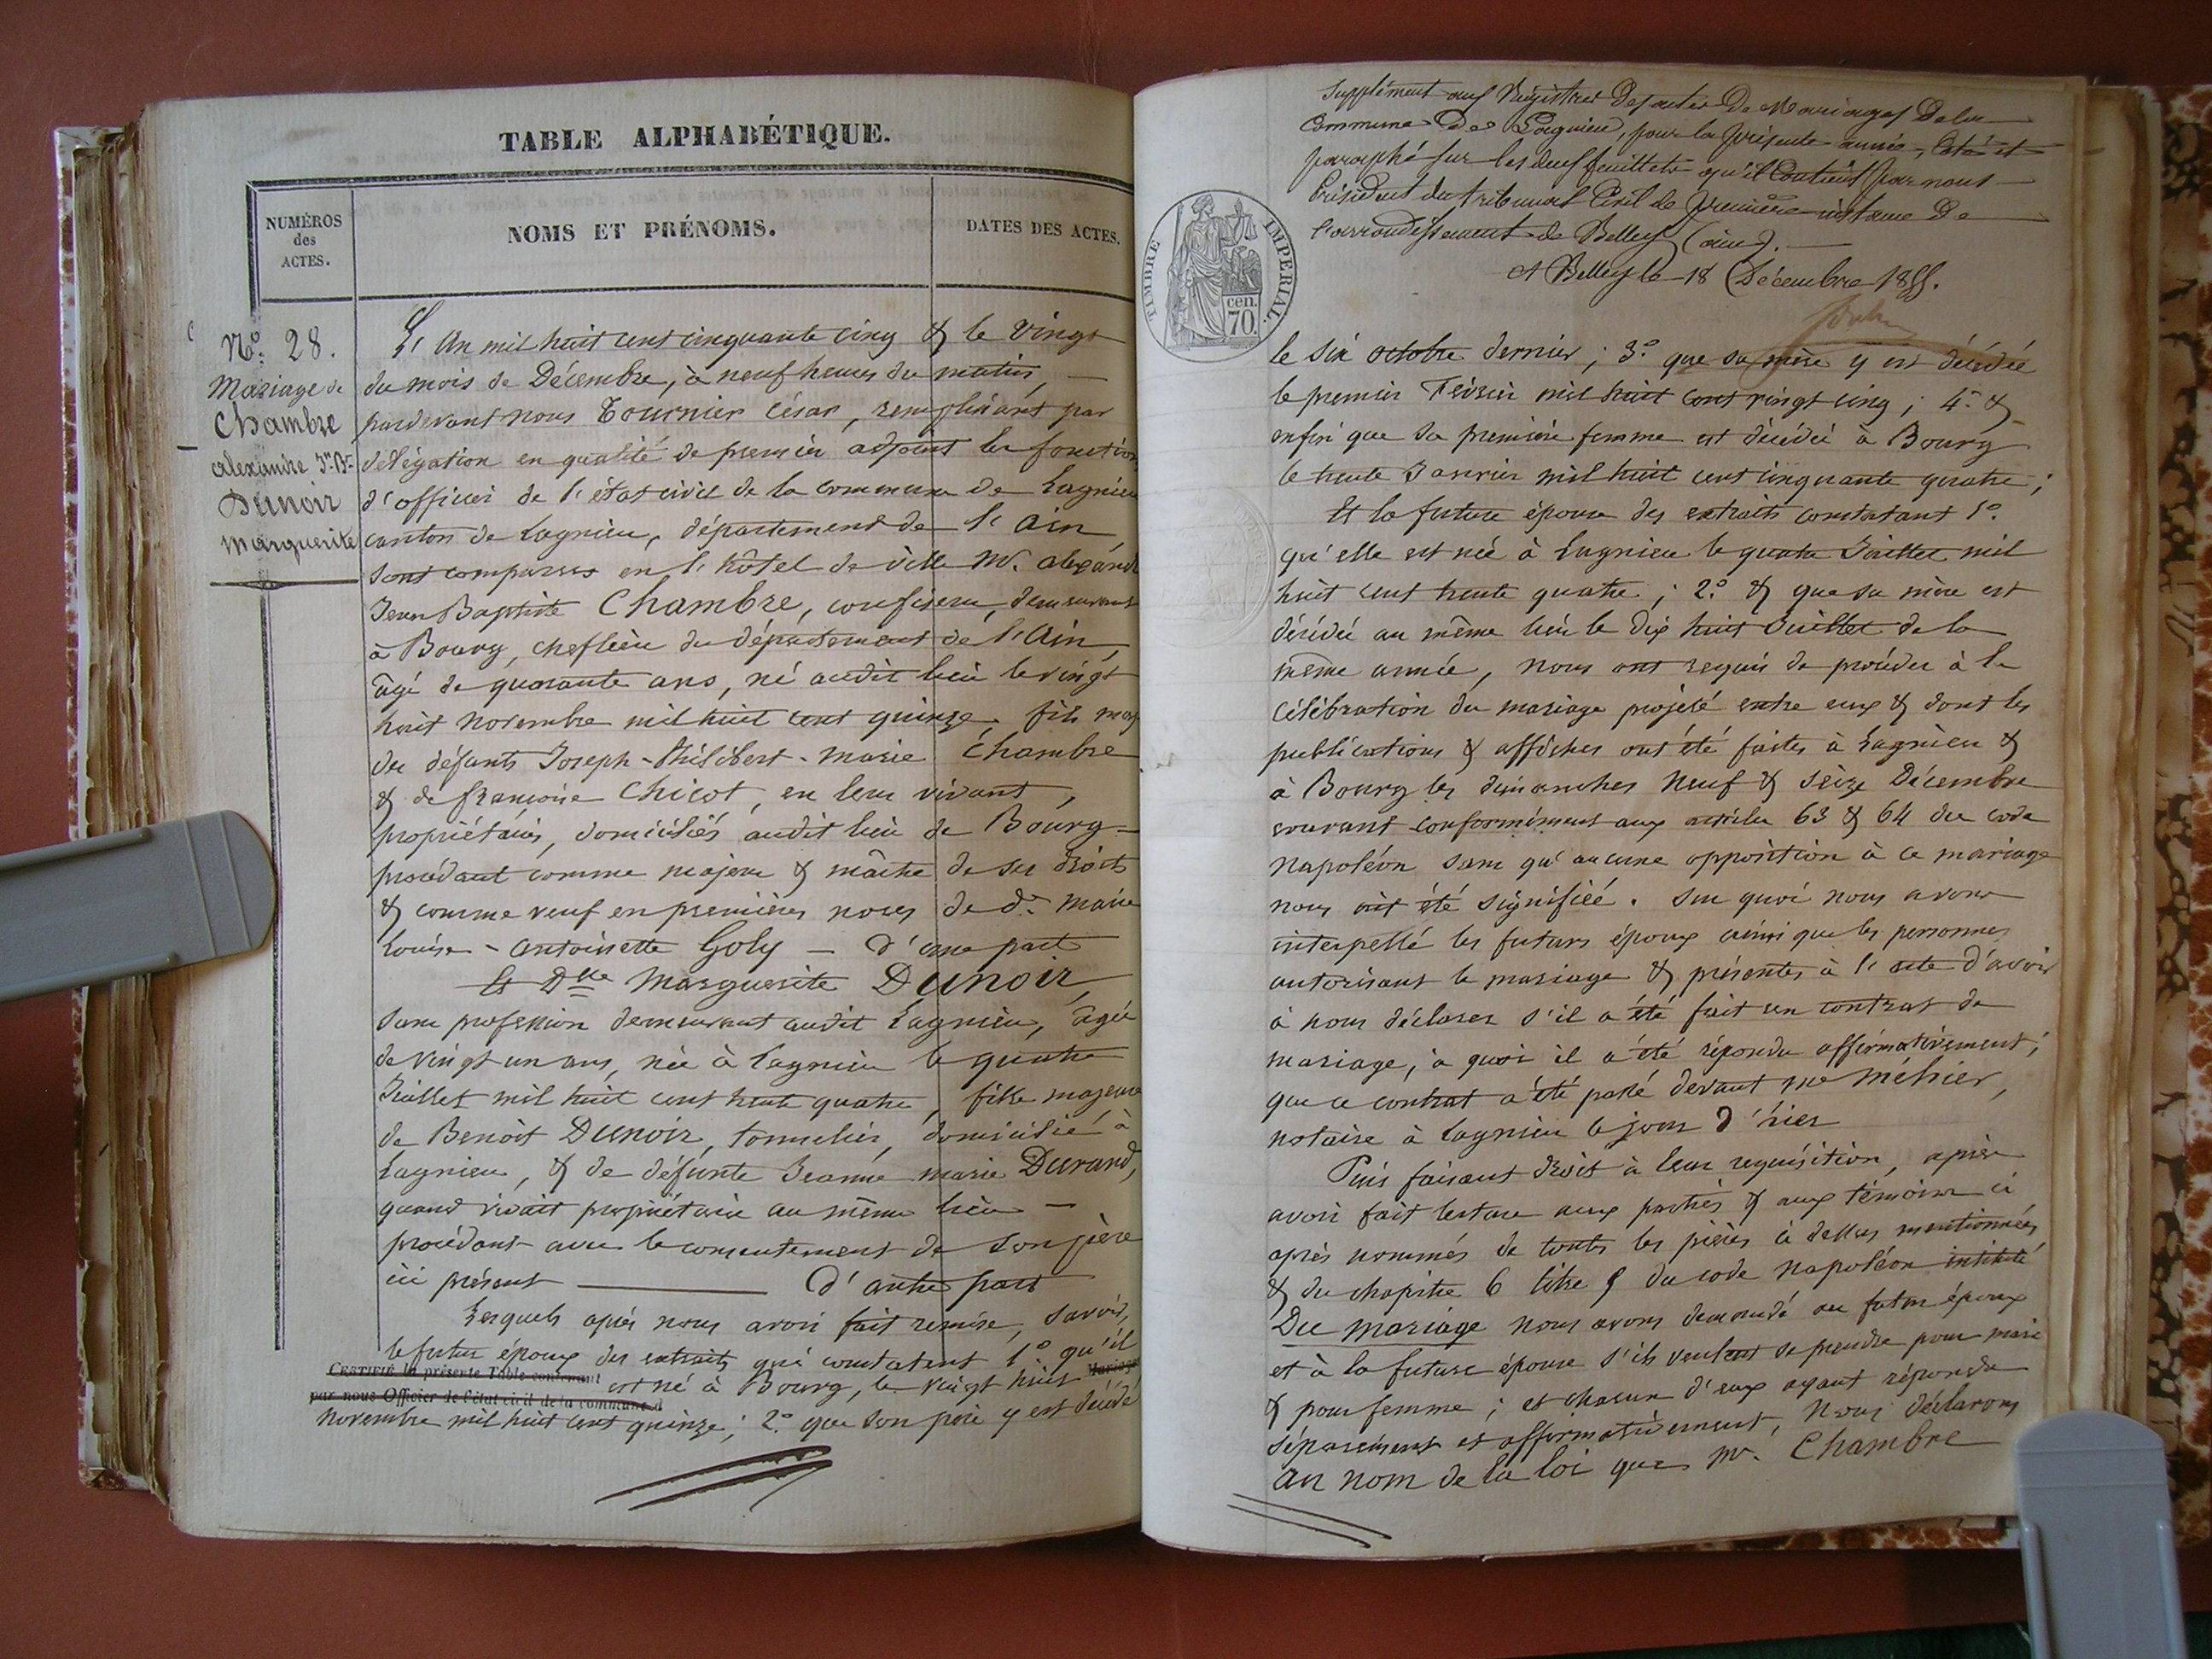 TABLE ALPHABÉTIQUE.
NUMÉROS
des
ACTES.
NOMS ET PRÉNOMS.
DATES DES ACTES.
No. 28.
Mariage de
Chambre
alexandre Jn. Bte
Dunoir
Marguerite
L'An mil huit cent cinquante cinq & le vingt
du mois de Décembre, à neuf heures du matin,
pardevant nous Tournier César, remplissant par
délégation en qualité de premier adjoint les fonction
d'officier de l'état civil de la commune de Lagnieu
canton de Lagnieu, département de l'Ain
sont comparus en l'hôtel de ville M. alexand
Jean Baptiste Chambre, confiseur, demeurant
à Bourg, cheflieu du département de l'Ain,
âgé de quarante ans, né audit lieu le vingt
huit novembre mil huit cent quinze, fils maj
des défunts Joseph-Philibert-Marie Chambre
& de françoise Chicot, en leur vivant,
propriétaires, domiciliés audit lieu de Bourg
procédant comme majeur & maître de ses droits
& comme veuf en premières noces de de. Marie
Louise-antoinette Goly — d'une part
Et Dlle Marguerite Dunoir,
sans profession demeurant audit Lagnieu, âgée
de vingt un ans, née à Lagnieu le quatre
Juillet mil huit cent trente quatre, fille majeure
de Benoît Dunoir, tonnelier, domicilié à
Lagnieu, & de défunte Jeanne marie Durand,
quand vivait propriétaire au même lieu —
procédant avec le consentement de son père
ici présent — d'autre part
Lesquels après nous avoir fait remise, savoir,
le futur époux des extraits qui constatent 1° qu'il
CERTIFIÉ la présente Table contenant
est né à Bourg, le vingt huit
Mariage
par nous Officier de l'état civil de la commune d
novembre mil huit cent quinze; 2° que son père y est décédé
Supplément aux Régistres des actes de Mariages de la
Commune de Lagnieu, pour la présente année, Coté et
paraphé sur les deux feuillets qu'il Contient par nous
Président du tribunal Civil de première instance De
l'arrondissement de Belley (ain).
A Belley le 18 Décembre 1855.
TIMBRE IMPERIAL.
cen.
70.
le six octobre dernier; 3° que sa mère y est décédée
le premier Février mil huit cent vingt cinq; 4° &
enfin que sa première femme est décédée à Bourg
le trente Janvier mil huit cent cinquante quatre;
Et la future épouse des extraits constatant 1°
qu'elle est née à Lagnieu le quatre Juillet mil
huit cent trente quatre; 2° & que sa mère est
décédée au même lieu le dix huit Juillet de la
même année, nous ont requis de procéder à la
célébration du mariage projeté entre eux & dont les
publications & affiches ont été faites à Lagnieu &
à Bourg les dimanches neuf & seize Décembre
courant conformément aux articles 63 & 64 du code
Napoléon sans qu'aucune opposition à ce mariage
nous ait été signifiée. Sur quoi nous avons
interpellé les futurs époux ainsi que les personnes
autorisant le mariage & présentes à l'acte d'avoir
à nous déclarer s'il a été fait un contrat de
mariage, à quoi il a été répondu affirmativement;
que ce contrat a été passé devant me
notaire à Lagnieu le jour d'hier
Puis faisant droit à leur requisition, après
avoir fait lecture aux parties & aux témoins ci
après nommés de toutes les pièces ci dessus mentionnées
& du chapitre 6 titre 5 du code Napoléon intitulé
Du Mariage nous avons demandé au futur époux
et à la future épouse s'ils veulent se prendre pour mari
& pour femme; et chacun d'eux ayant répondu
séparément et affirmativement, Nous déclarons
au nom de la loi que Mr. Chambre